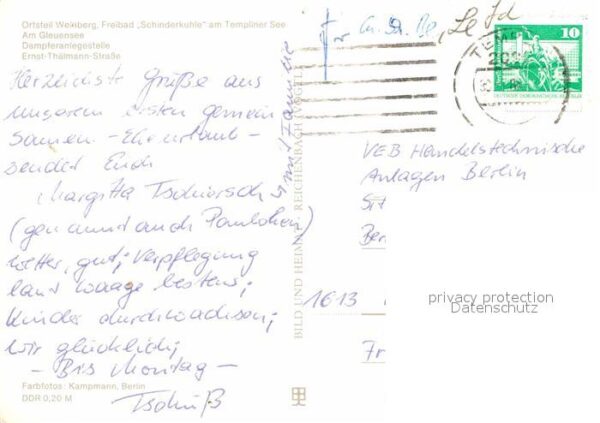 Ortsteil Weinberg, Freibad „Schinderkuhle" am Templiner See
Am Gleuensee
Dampferanlegestelle
Ernst-Thälmann-Straße
Herzlichste Grüße aus
unserem ersten gemein
samen - Eheurlaub -
sendet Euch
Margitta Tschiersch
mit Familie
(genannt auch Paulchen)
Wetter, gut; Verpflegung
laut Waage bestens;
Kinder durchwachsen;
wir glücklich;
- Bis Montag -
Tschüß
Farbfotos: Kampmann, Berlin
DDR 0,20 M
BILD UND HEIMAT REICHENBACH (VOGTL)
für
TEMP
10
DEUTSCHE DEMOKRATISCHE REPUBLIK
VEB Handelstechnische
Anlagen Berlin
Sit
Ber
1613
Fr
privacy protection
Datenschutz